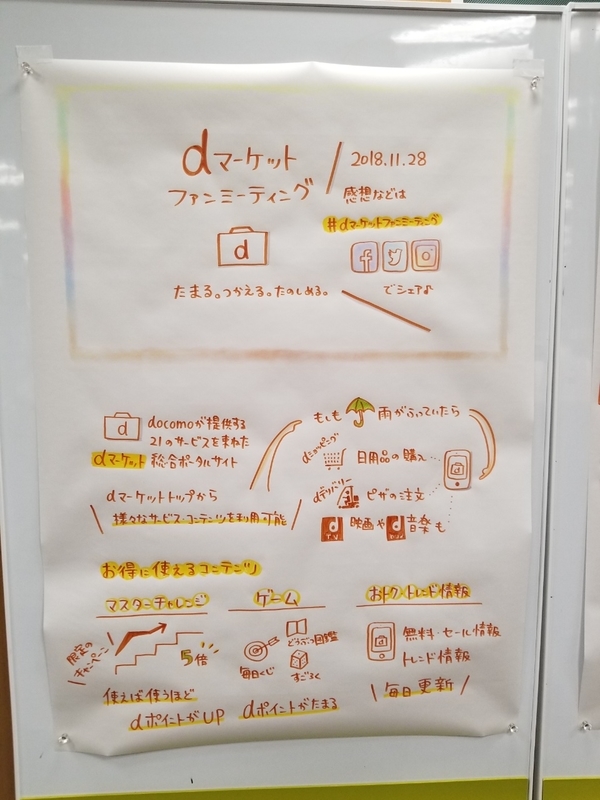 dマーケット
ファンミーティング
2018.11.28
感想などは
#dマーケットファンミーティング
でシェア♪
d
たまる。つかえる。たのしめる。
d
docomoが提供する
21のサービスを束ねた
dマーケット 総合ポータルサイト
dマーケットトップから
様々なサービス・コンテンツを利用可能
もしも 雨がふっていたら
dショッピング
日用品の購入…
dデリバリー
ピザの注文…
映画や 音楽も
d TV
d
お得に使えるコンテンツ
マスターチャレンジ
限定の
キャンペーン
5倍
使えば使うほど
dポイントがUP
ゲーム
どうぶつ図鑑
毎日くじ
すごろく
dポイントがたまる
おトク・トレンド情報
無料・セール情報
トレンド情報
毎日更新